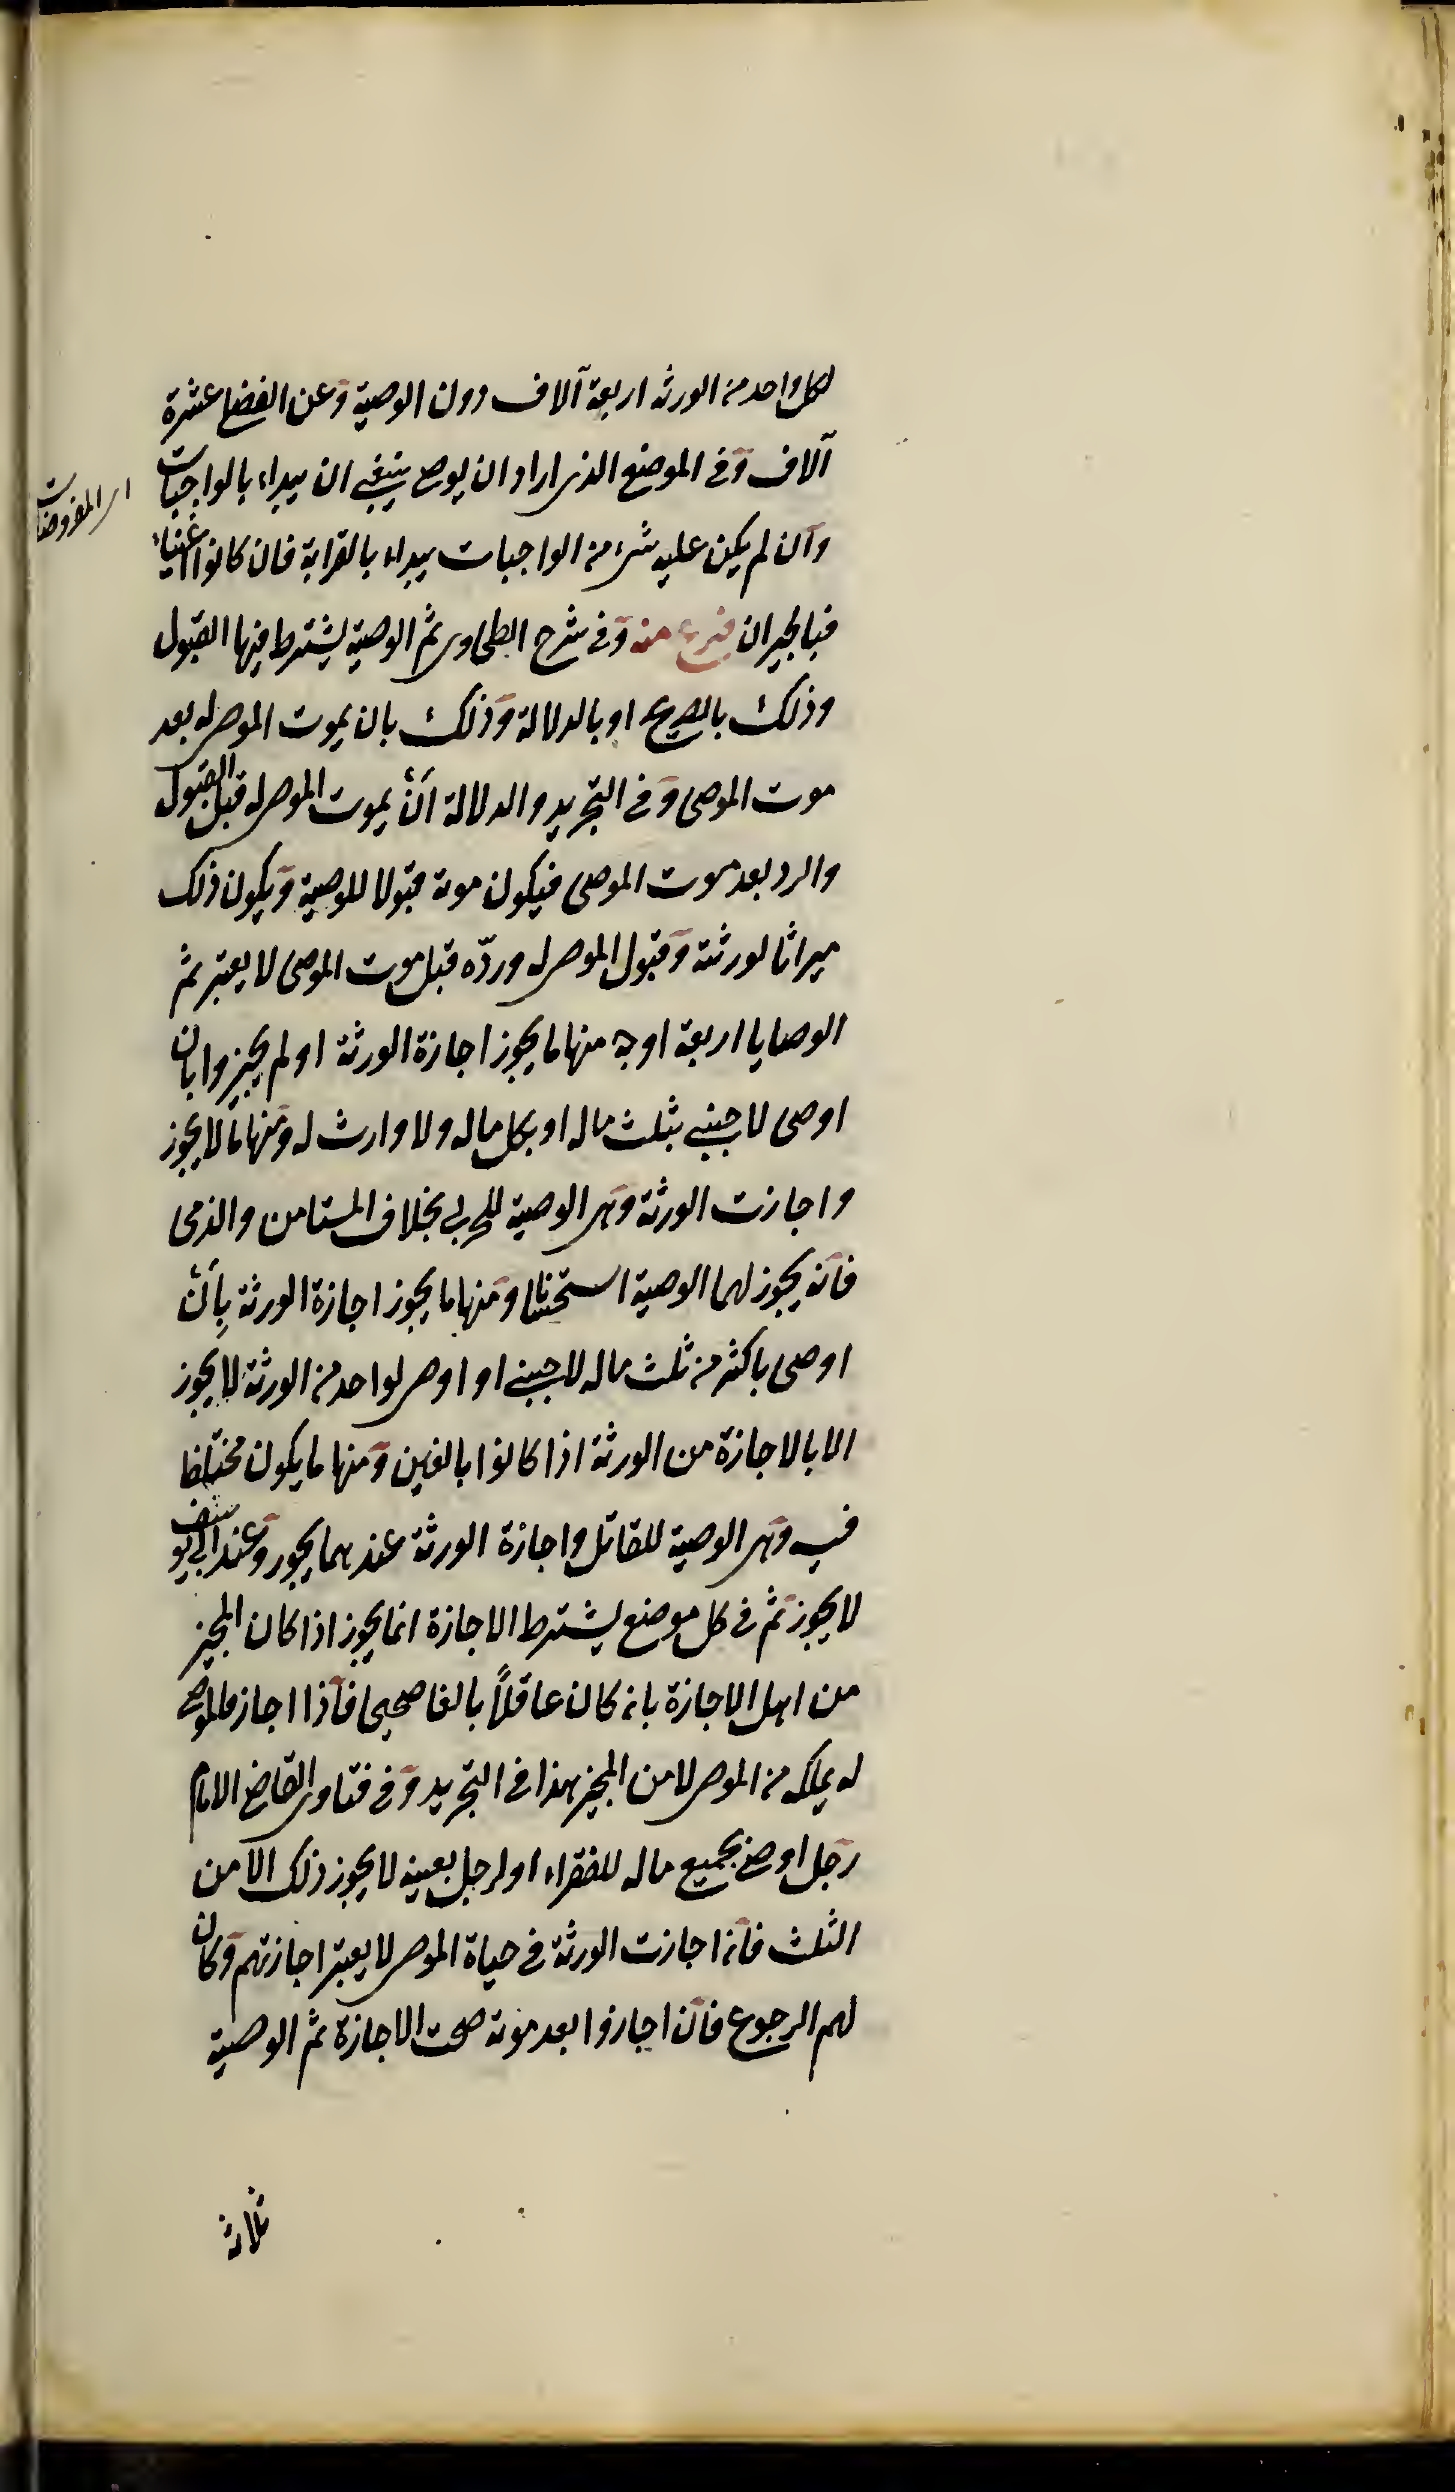 لكل واحد من الورثة اربعة آلاف دون الوصية وعن الفضلى عشرة
آلاف وفى الموضع الذى اراد ان يوصى ينبغى ان يبداء بالواجبات
اى المفروضات
وان لم يكن عليه شىء من الواجبات يبداء بالقرابة فان كانوا اغنياء
فبالجيران منه وفى شرح الطحاوى ثم الوصية يشترط فيها القبول
وذلك بالصريح او بالدلالة وذلك بان يموت الموصى له بعد
موت الموصى وفى التجريد والدلالة أن يموت الموصى له قبل القبول
والرد بعد موت الموصى فيكون موته قبولا للوصية ويكون ذلك
ميراثا لورثته وقبول الموصى له وردّه قبل موت الموصى لا يعتبر ثم
الوصايا اربعة اوجه منها ما يجوز اجازة الورثة او لم يجيزوا بان
اوصى لاجنبى بثلث ماله او بكل ماله ولا وارث له ومنها ما لا يجوز
واجازت الورثة وهى الوصية للحربى بخلاف المستامن والذمى
فانه يجوز لهما الوصية استحسانا ومنها ما يجوز اجازة الورثة بِأَن
اوصى باكثر من ثلث ماله لاجنبى او اوصى لواحد من الورثة لا يجوز
الا بالاجازة من الورثة اذا كانوا بالغين ومنها ما يكون مختلفا
فيه وهى الوصية للقاتل واجازة الورثة عندهما يجوز وعند ابى يوسف
لا يجوز ثم فى كل موضع يشترط الاجازة انما يجوز اذا كان المجيز
من اهل الاجازة بانه كان عاقلاً بالغا صحيحا فاذا اجاز فالموصى
له يملكه من الموصى لا من المجيز هذا فى التجريد وفى فتاوى القاضى الامام
رجل اوصى بجميع ماله للفقراء او لرجل بعينه لا يجوز ذلك الا من
الثلث فان اجازت الورثة فى حياة الموصى لا يعتبر اجازتهم وكان
لهم الرجوع فان اجازوا بعد موته صحت الاجازة ثم الوصية
ثلاثة